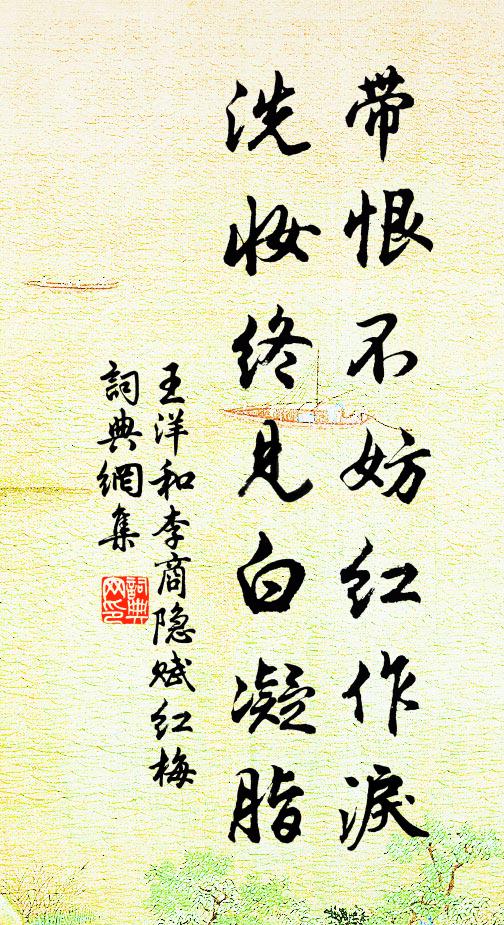 带恨不妨红作淚
洗妆终见白凝脂
王洋和李商隐赋红梅
詞典網集
詞典網印